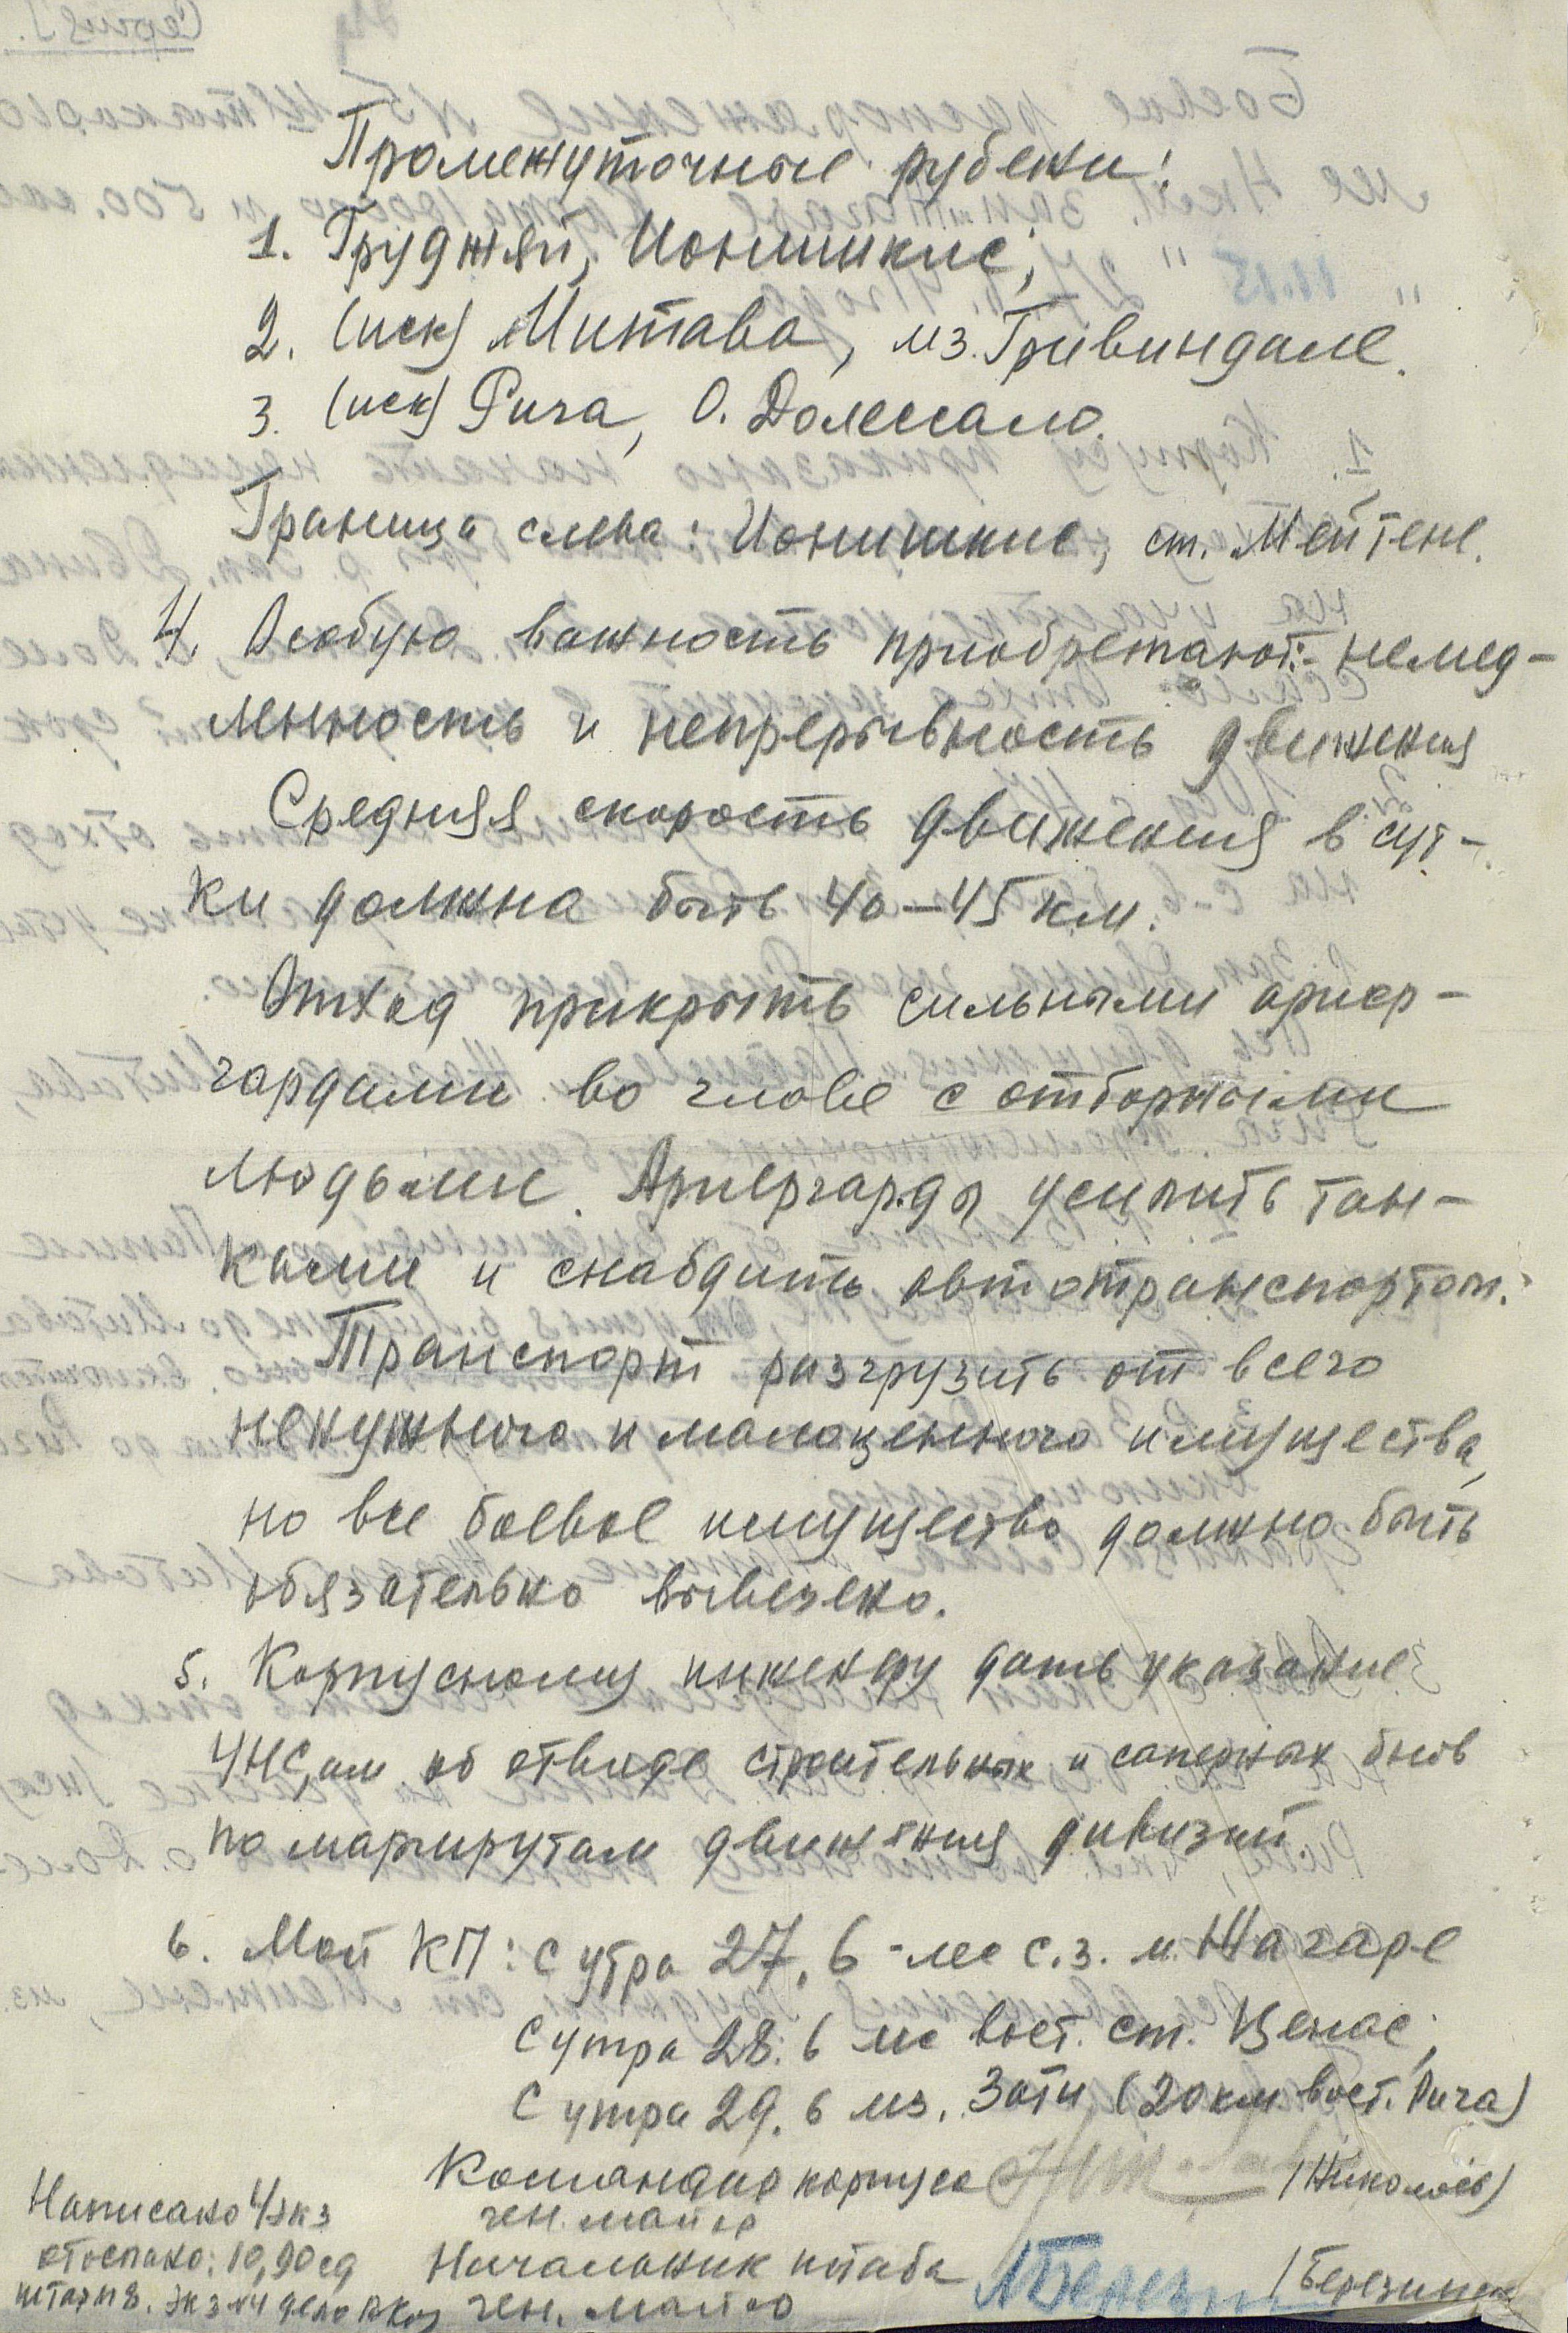 Промежуточные рубежи:
1. Груджяй, Ионишкис;
2. (иск) Митава, мз. Гривиндале.
3. (иск) Рига, О. Долессало.
Граница слева: Ионишкис, ст. Мейтене.
4. Особую важность приобретают:- немед-
ленность и непрерывность движения
Средняя скорость движения в сут-
ки должна быть 40–45 км.
Отход прикрыть сильными ариер-
гардами во главе с отборными
людьми. Ариергарды усилить тан-
ками и снабдить автотранспортом.
Транспорт разгрузить от всего
ненужного и малоценного имущества,
но все боевое имущество должно быть
обязательно вывезено.
5. Корпусному инженеру дать указание
УНС,ам об отводе строительных и саперных б-нов
по маршрутам движения дивизий.
6. Мой КП: с утра 27.6 - лес с.з. м. Жагаре
с утра 28.6 лес вост. ст. Ценас;
с утра 29.6 мз. Зоти (20 км вост. Рига)
Командир корпуса (Николаев)
ген. майор
Начальник штаба (Березинск
ген. майор
Написано 4 экз
отослано: 10, 90 сд
штарм 8. экз №4 дело